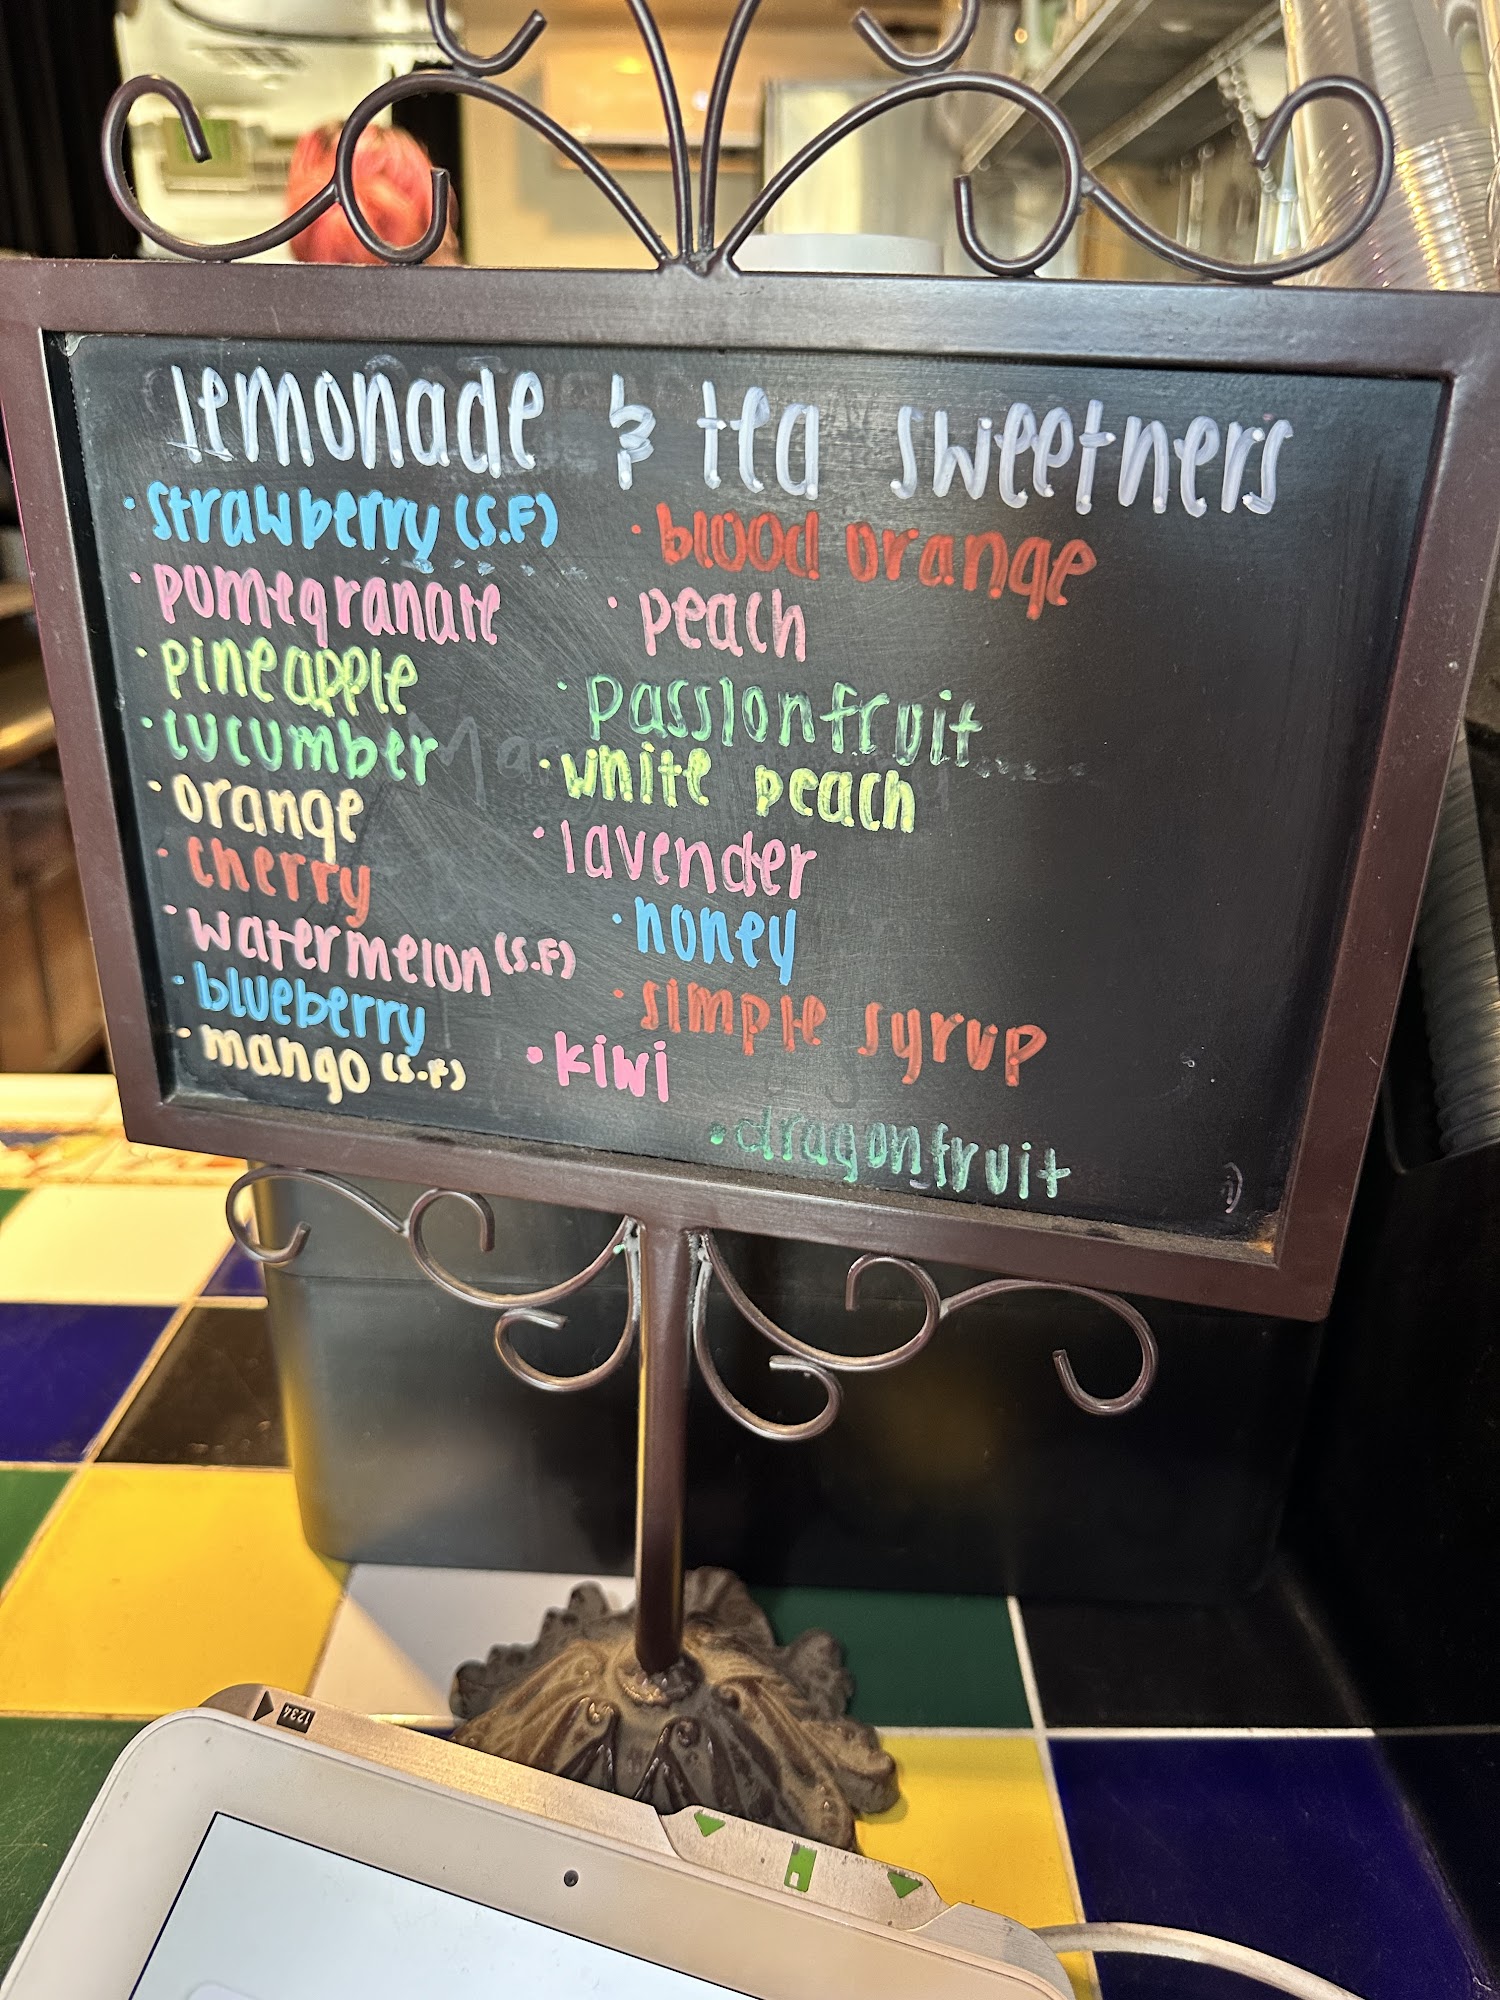 lemonade & tea sweetners
· strawberry (S.F)
· pomegranate
· pineapple
· cucumber
· orange
· cherry
· watermelon (S.F)
· blueberry
· mango (S.F)
· blood orange
· peach
· passionfruit
· white peach
· lavender
· honey
· simple syrup
· kiwi
· dragonfruit
1234